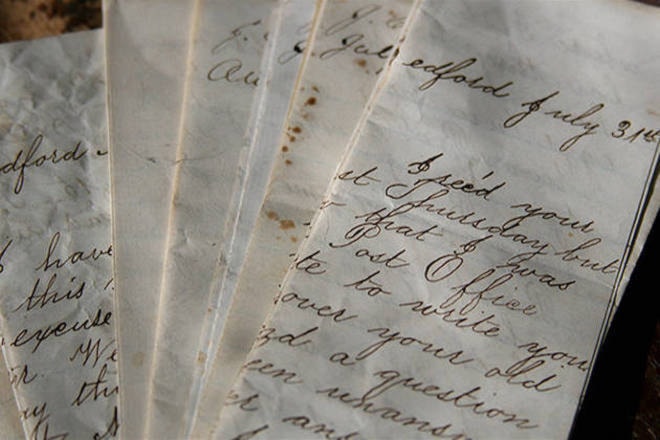 dford
I have
this
excuse
We
J.
Au
J. 
J. Jul
edford July 31st
I rec'd your
st Thursday but
that I was
Post Office
te to write you
over your old
d a question
een unansw